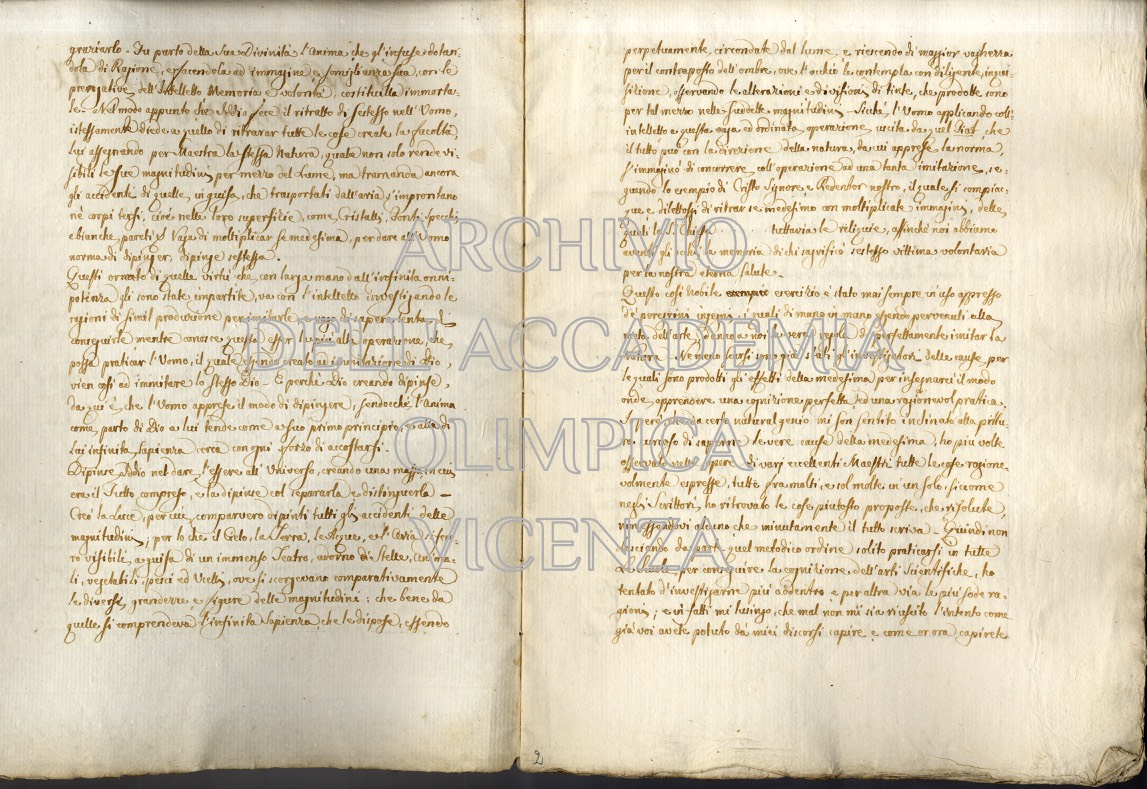 graziarlo. Fu parto della Sua Divinità l'Anima che gl'infuse dotan:
dola di Ragione, e facendola ad immagine e somiglianza sua, con le
prerogative dell'Intelletto Memoria e volontà, costituilla immorta:
le. Nel modo appunto che Iddio fece il ritratto di Sestesso nell'Uomo,
istessamente diede a quello di ritrarar tutte le cose create la facoltà,
lui assegnando per Maestra la stessa Natura, quale non solo rende vi:
sibili le sue magnitudini per mezzo del Lume, ma tramanda ancora
gli accidenti di quelle, in guisa, che trasportati dall'aria s'improntano
nè corpi tersi, cioè nelle loro superfizie, come Cristalli, Fonti, specchi
e bianche pareti. Vaga di moltiplicar se medesima, per dare all'Uomo
norma di dipinger, dipinge sestessa.
Questi ornato di quelle virtù che con larga mano dall'infinita onni:
potenza gli sono state impartite, va con l'intelletto investigando le
ragioni di simil produzione per imitarle, e vago di saper
conseguirle mente conosce questa esser la più alta operazione, che
possa praticar l'Uomo, il quale essendo creato ad imitazione di Dio,
vien così ad immitare lo stesso Dio. E perchè Dio creando dipinse,
da qui è, che l'Uomo apprese il modo di dipingere, sendocchè l'Anima
come parto di Dio a lui tende come a suo primo principio, e alla di
Lui infinita Sapienza cerca con ogni sforzo di accostarsi.
Dipinse Iddio nel dare l'essere all'Universo, creando una massa in cui
era il Tutto compreso, e la dipinse col separarla e distinguerla
Creò la Luce, per cui comparvero dipinti tutti gli accidenti delle
magnitudini; per lo che il Cielo, la Terra, le Acque, e l'Aria si fece:
ro visibili, a guisa di un immenso Teatro, adorno di Stelle, Anima:
li, vegetabili, pesci ed Uccelli, ove si scorgevano comparativamente
le diverse grandezze e figure delle magnitudini: che bene da
quelle si comprendeva l'infinita Sapienza, che le dispose, essendo
perpetuamente circondate dal lume, e riescendo di maggior vaghezza
per il contraposto dell'ombre, ove l'occhio le contempla con diligente inqui:
sizione, osservando le alterazioni e divisioni di tinte, che prodotte sono
per tal mezzo nelle suddette magnitudini. Sicchè l'Uomo applicando coll'
intelletto a questa vaga ed ordinata operazione uscita da quel Fiat, che
il tutto può con la direzione della natura, da cui apprese la norma,
s'immaginò di concorrere coll'operazione ad una tanta imitazione, se:
guendo lo esempio di Cristo Signore e Redentor nostro, il quale si compiac:
que e dilettossi di ritrar se medesimo con moltiplicate immagini, delle
quali la S. Chiesa tuttavia le reliquie, affinchè noi abbiamo
avanti gli occhi la memoria di chi sagrificò sestesso vittima volontaria
per la nostra eterna salute.
Questo così nobile esercizio è stato mai sempre in uso appresso
de' peregrini ingegni, i quali di mano in mano essendo pervenuti alla
meta dell'arte, diedero a noi la vera regola di perfettamente imitar la
Natura. Nemeno scarsi sono già stati gl'investigatori delle cause, per
le quali sono prodotti gli effetti della medesima per insegnarci il modo
onde apprendere una cognizione perfetta ed una ragionevol pratica.
Sincerò che da certo natural genio mi son sentito inclinato alla pittu:
ra curioso di saperne le vere cause della medesima, ho più volte
osservato nelle opere di varj eccellenti Maestri tutte le cose ragione:
volmente espresse, tutte fra molti, e col molte in un solo, siccome
negli Scrittori ho ritrovato le cose piutosto proposte, che risolute,
non essendovi alcuno che minutamente il tutto scriva. Quindi non
da parte quel metodico ordine solito praticarsi in tutte
Le Scuole per conseguire la cognizione dell'arti Scientifiche, ho
tentato d'investigarne più addentro e per altra via le più sode ra:
gioni; e in fatti mi lusingo, che mal non mi sia riuscito l'intento come
già voi avete potuto da' miei discorsi capire e come or ora capirete
2
ARCHIVIO
DELL'ACCADEMIA
OLIMPICA
VICENZA